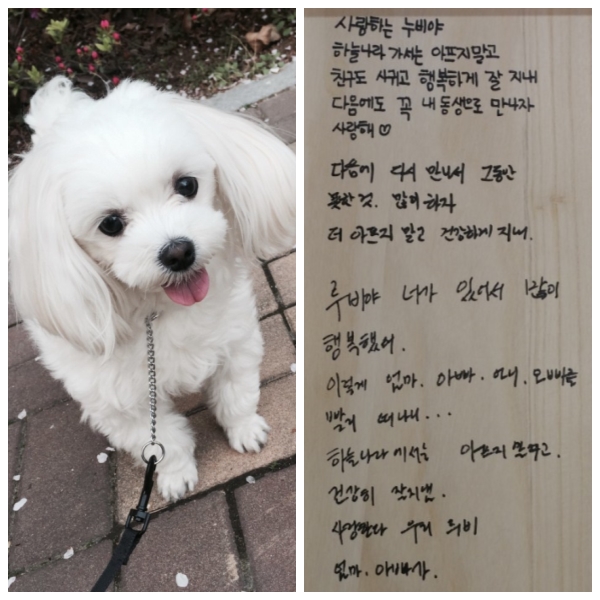 사랑하는 누비야
하늘나라 가서는 아프지말고
친구도 사귀고 행복하게 잘 지내
다음에도 꼭 내 동생으로 만나자
사랑해 ♡
다음에 다시 만나서 그동안
못한 것. 많이 하자
더 아프지 말고 건강하게 지내.
루비야 너가 있어서 많이
행복했어.
이렇게 엄마. 아빠. 언니. 오빠를
빨리 떠나니...
하늘나라에서는 아프지 말고.
건강히
사랑한다 우리 루비
엄마. 아빠가.